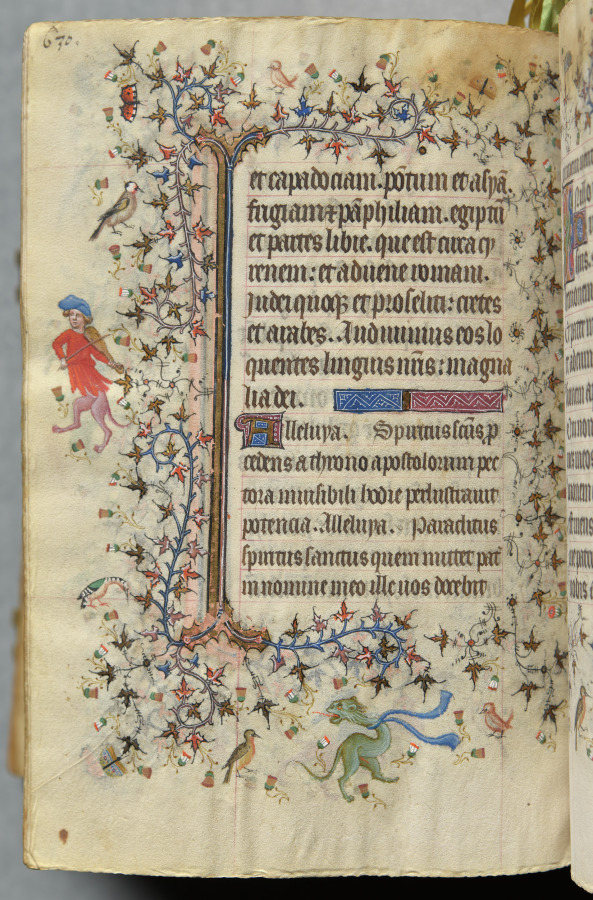 630.
et capadociam. põtum et asyã.
frigiam ⁊ pãphiliam. egiptũ
et partes libie. que est circa cy
renem: et aduene romani.
Judei quoqꝫ et proseliti: cretes
et arabes. Audiuimus eos lo
quentes linguis nr̃is: magna
lia dei.
Alleluya. Spiritus scũs ꝓ
cedens a throno apostolorum pec
tora inuisibili hodie perlustrauit
potencia. Alleluya. Paraclitus
spiritus sanctus quem mittet pat̃
in nomine meo ille uos docebit